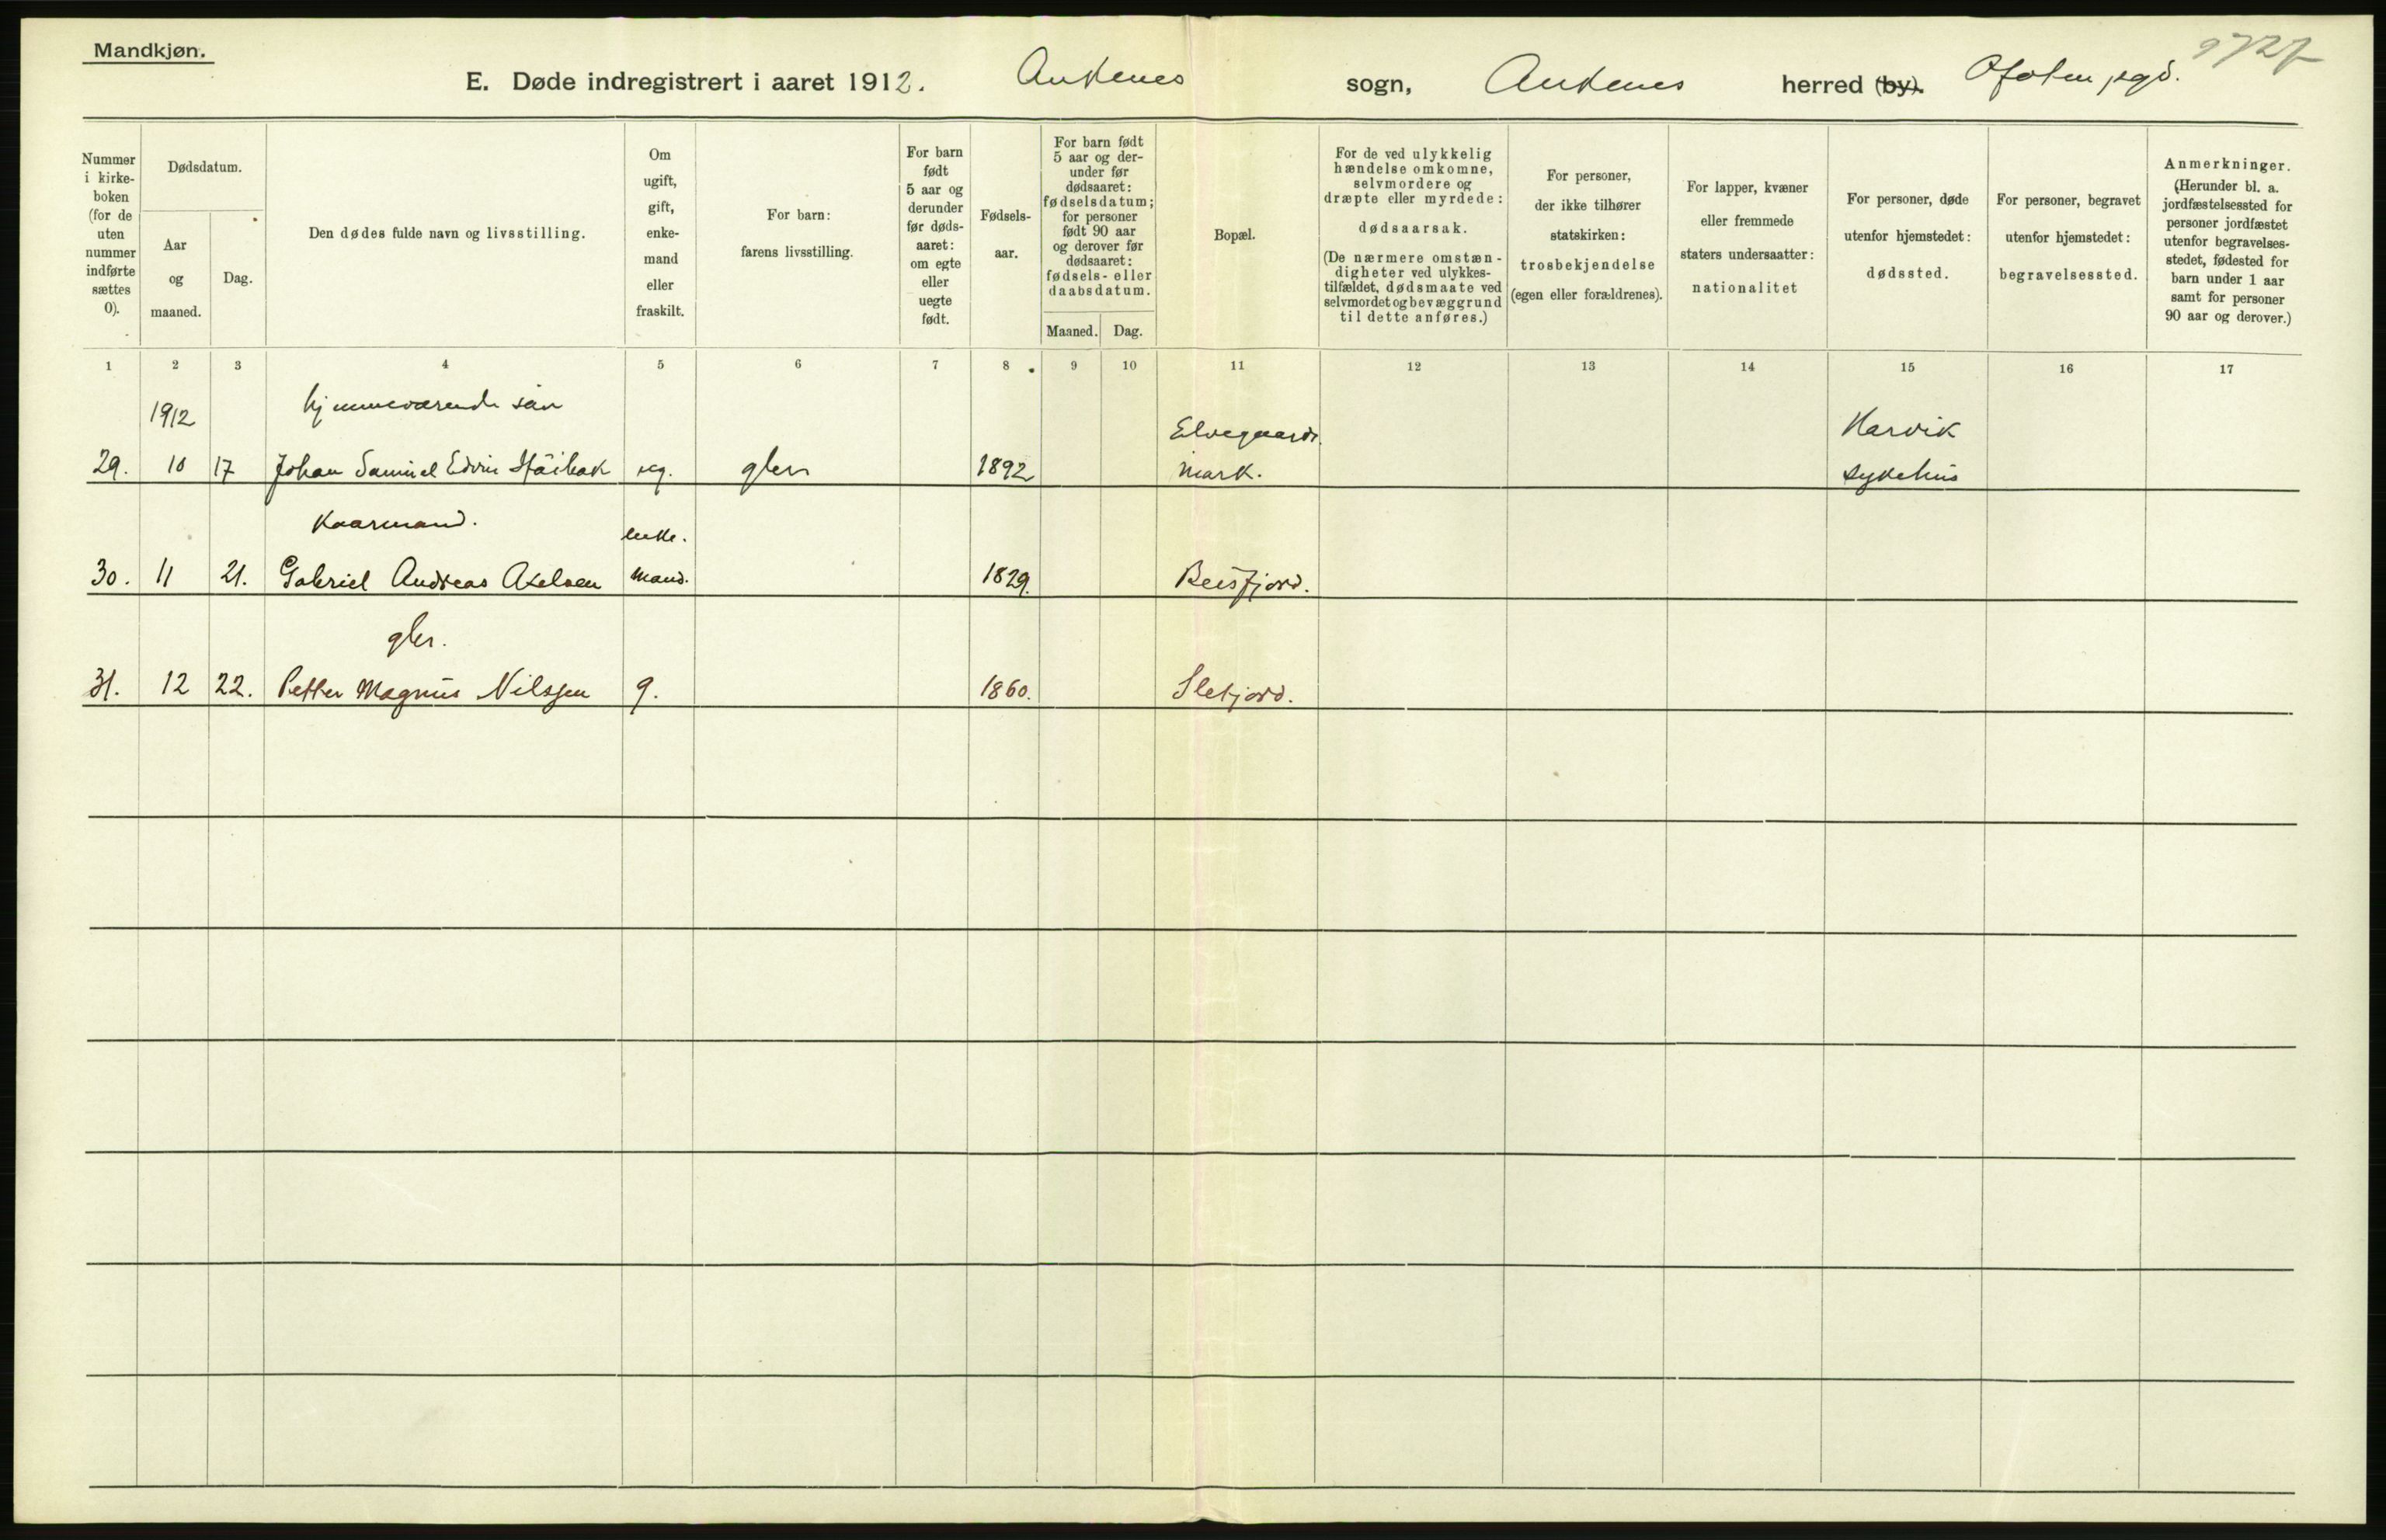 Mandkjøn.
E. Døde indregistrert i aaret 1912. Ankenes sogn, Ankenes herred (by). Ofoten pgd. 9727
Nummer i kirkeboken (for de uten nummer indførte sættes 0).
Dødsdatum.
Aar og maaned.
Dag.
Den dødes fulde navn og livsstilling.
Om ugift, gift, enkemand eller fraskilt.
For barn: farens livsstilling.
For barn født 5 aar og derunder før dødsaaret: om egte eller uegte født.
Fødselsaar.
For barn født 5 aar og derunder før dødsaaret: fødselsdatum; for personer født 90 aar og derover før dødsaaret: fødsels- eller daabsdatum.
Maaned. Dag.
Bopæl.
For de ved ulykkelig hændelse omkomne, selvmordere og dræpte eller myrdede: dødsaarsak. (De nærmere omstændigheter ved ulykkestilfældet, dødsmaate ved selvmordet og bevæggrund til dette anføres.)
For personer, der ikke tilhører statskirken: trosbekjendelse (egen eller forældrenes).
For lapper, kvæner eller fremmede staters undersaatter: nationalitet
For personer, døde utenfor hjemstedet: dødssted.
For personer, begravet utenfor hjemstedet: begravelsessted.
Anmerkninger. (Herunder bl. a. jordfæstelsessted for personer jordfæstet utenfor begravelsesstedet, fødested for barn under 1 aar samt for personer 90 aar og derover.)
1 2 3 4 5 6 7 8 9 10 11 12 13 14 15 16 17
1912 hjemmeværende søn Elvegaards Narvik
29. 10 17 Johan Samuel Edvin ug. gbr 1892 mark. sykehus
Kaarmand. enke.
30. 11 21. Gabriel Andreas Axelsen mand. 1829. Beisfjord.
gbr.
31. 12 22. Petter Magnus Nilssen g. 1860.